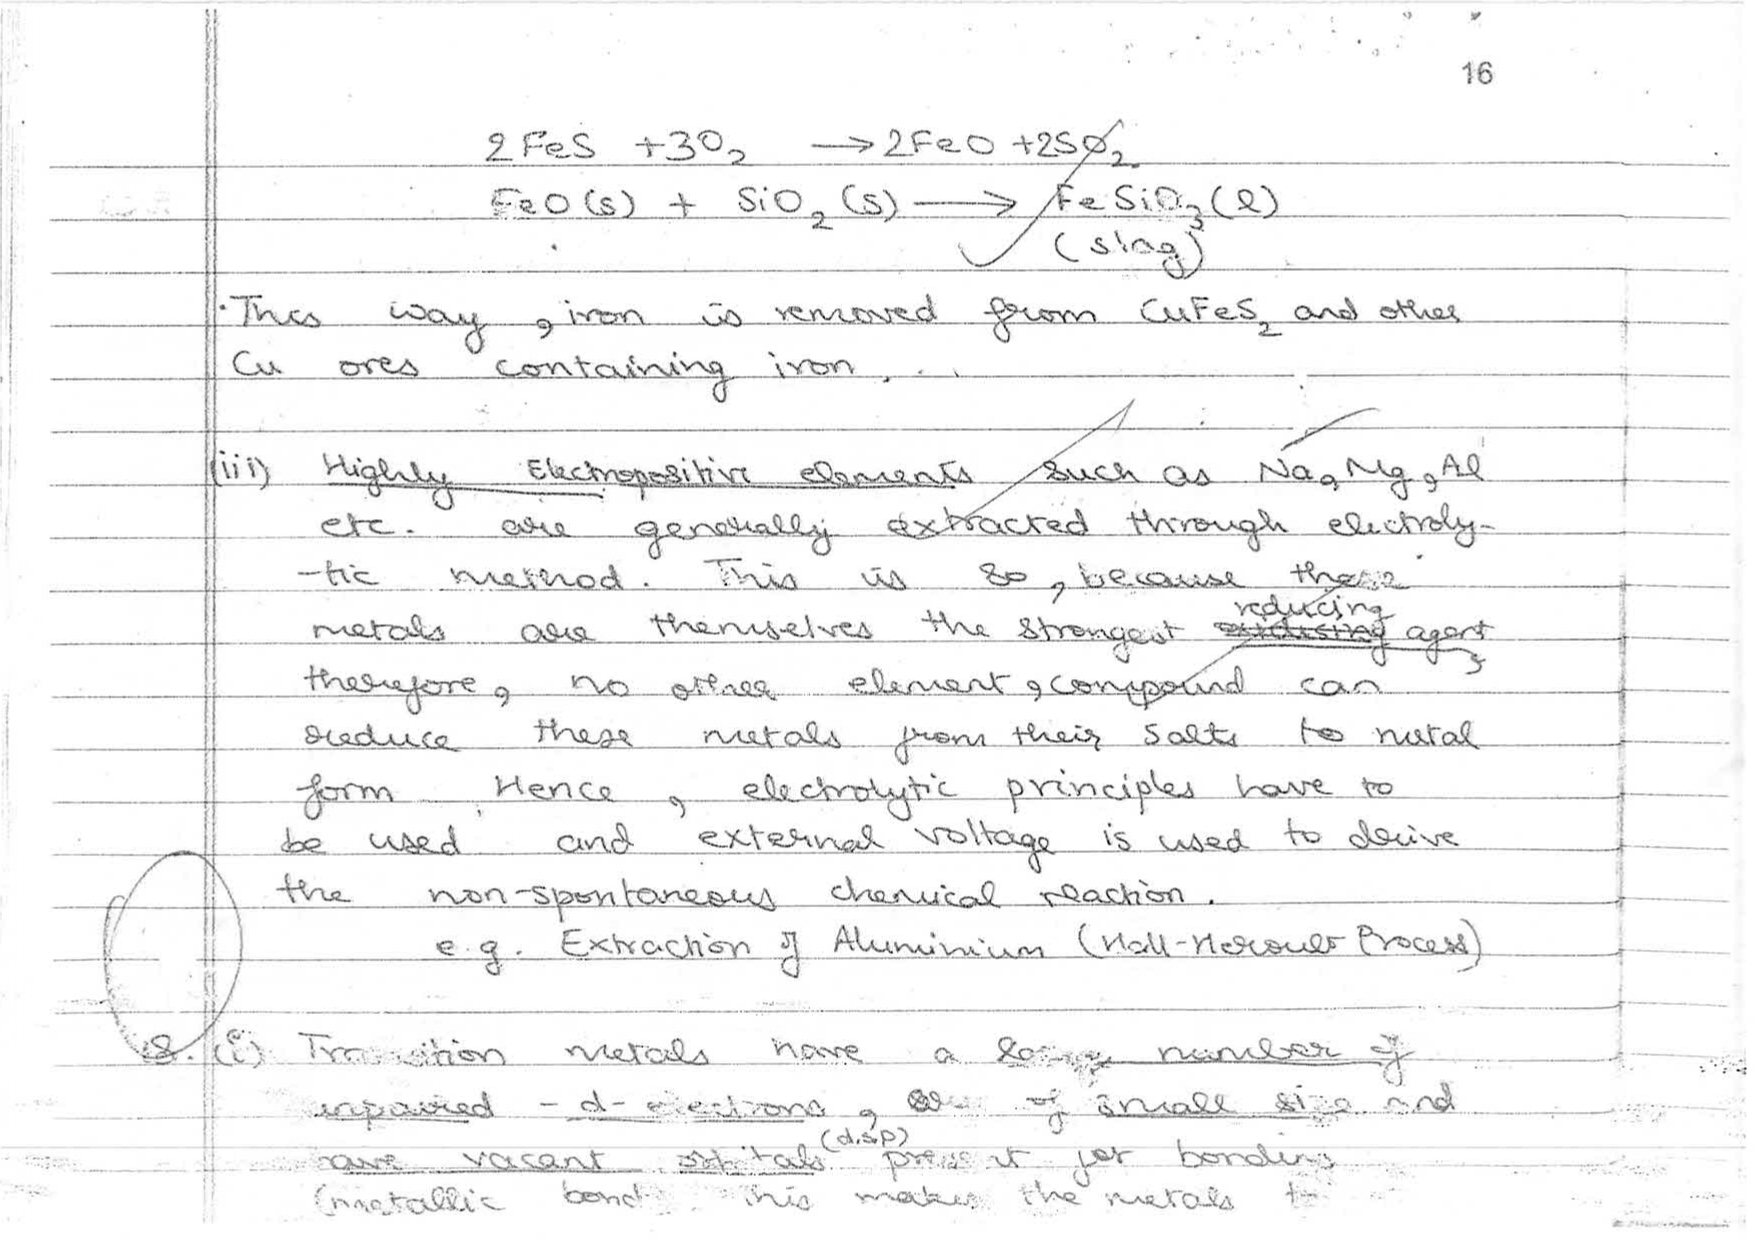 16
2FeS + 3O₂ → 2FeO + 2SO₂
FeO(s) + SiO₂(s) → FeSiO₃(l)
(slag)
This way, iron is removed from CuFeS₂ and other
Cu ores containing iron.
(iii) Highly Electropositive elements such as Na, Mg, Al
etc. are generally extracted through electroly-
-tic method. This is so, because these
reducing
metals are themselves the strongest agent
therefore, no other element, compound can
reduce these metals from their salts to metal
form. Hence, electrolytic principles have to
be used and external voltage is used to drive
the non-spontaneous chemical reaction.
e.g. Extraction of Aluminium (Hall-Heroult Process)
18. (i) Transition metals have a large number of
unpaired - d- electrons, are of small size and
have vacant orbitals (d,s,p) present for bonding
(metallic bond. This makes the metals